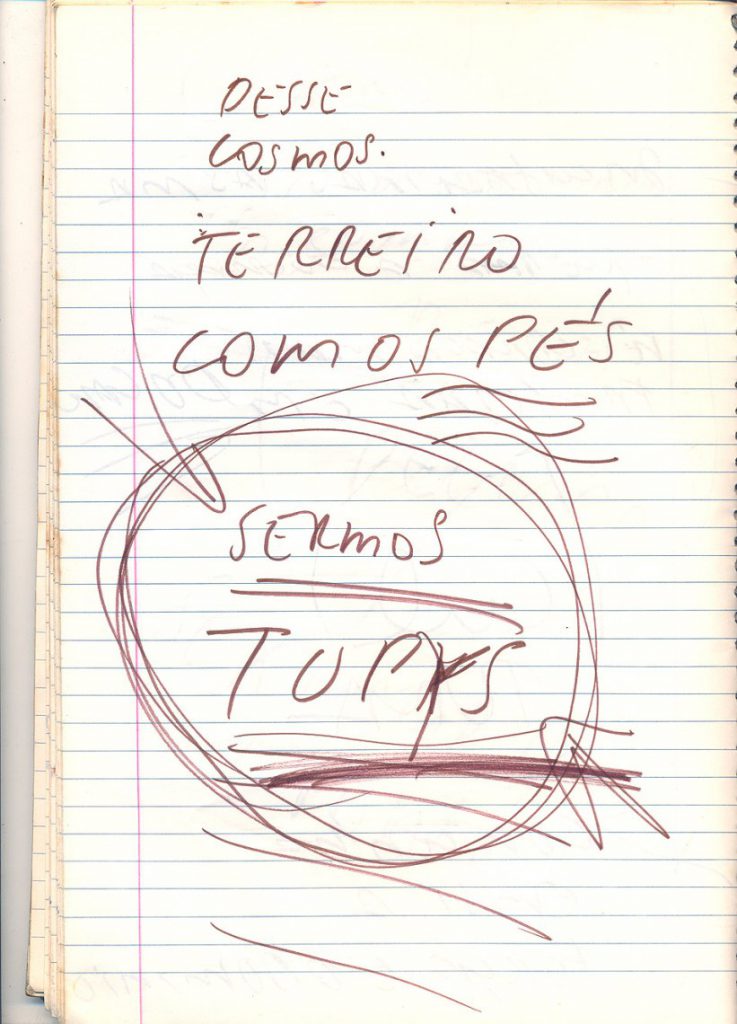 DESSE
COSMOS.
TERREIRO
COM OS PÉS
SERMOS
TUPYS